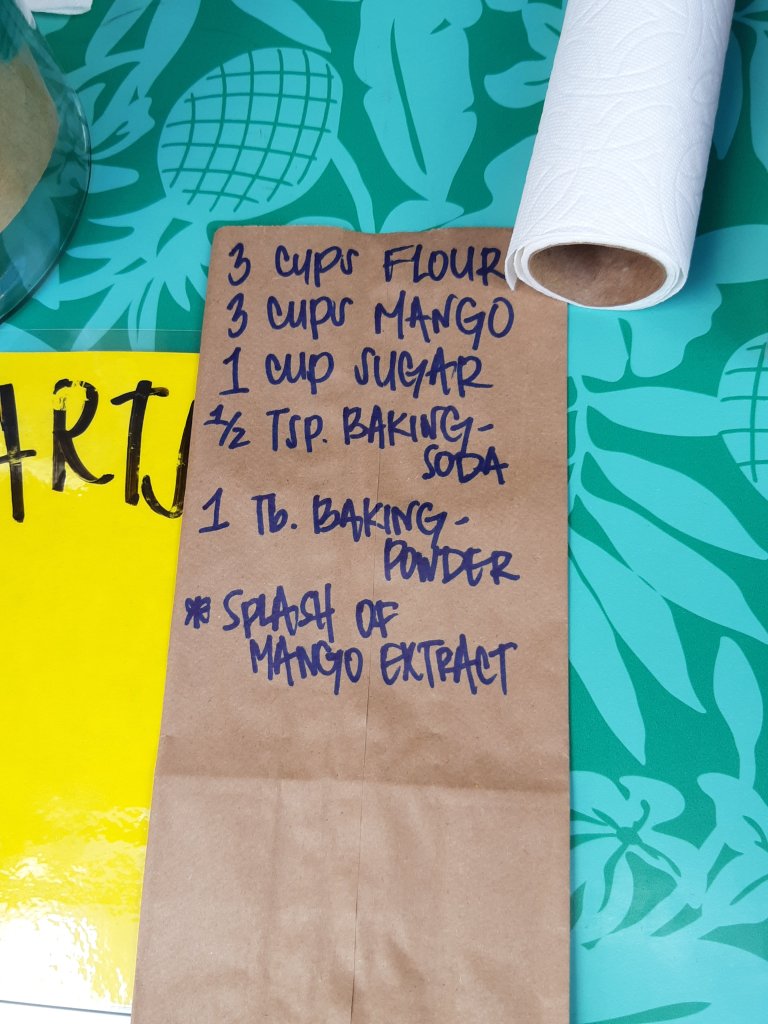 3 CUPS FLOUR
3 CUPS MANGO
1 CUP SUGAR
1/2 TSP. BAKING-
SODA
1 Tb. BAKING-
POWDER
* SPLASH OF
MANGO EXTRACT